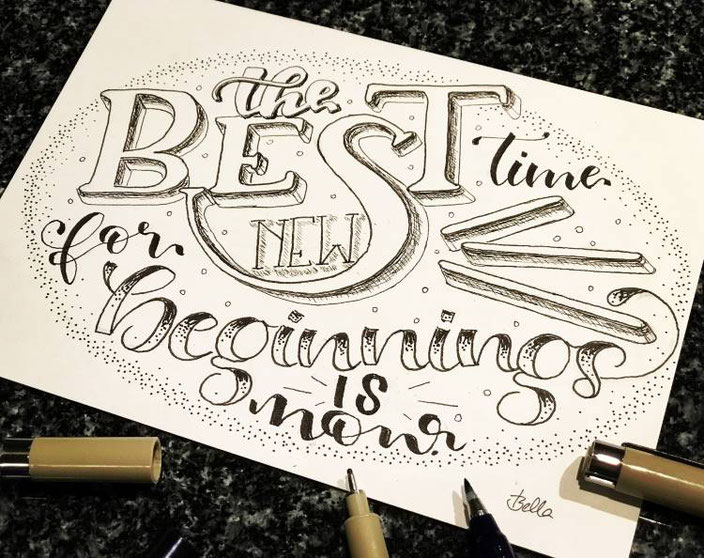 the
BEST time
for NEW
beginnings
IS
now.
Bella